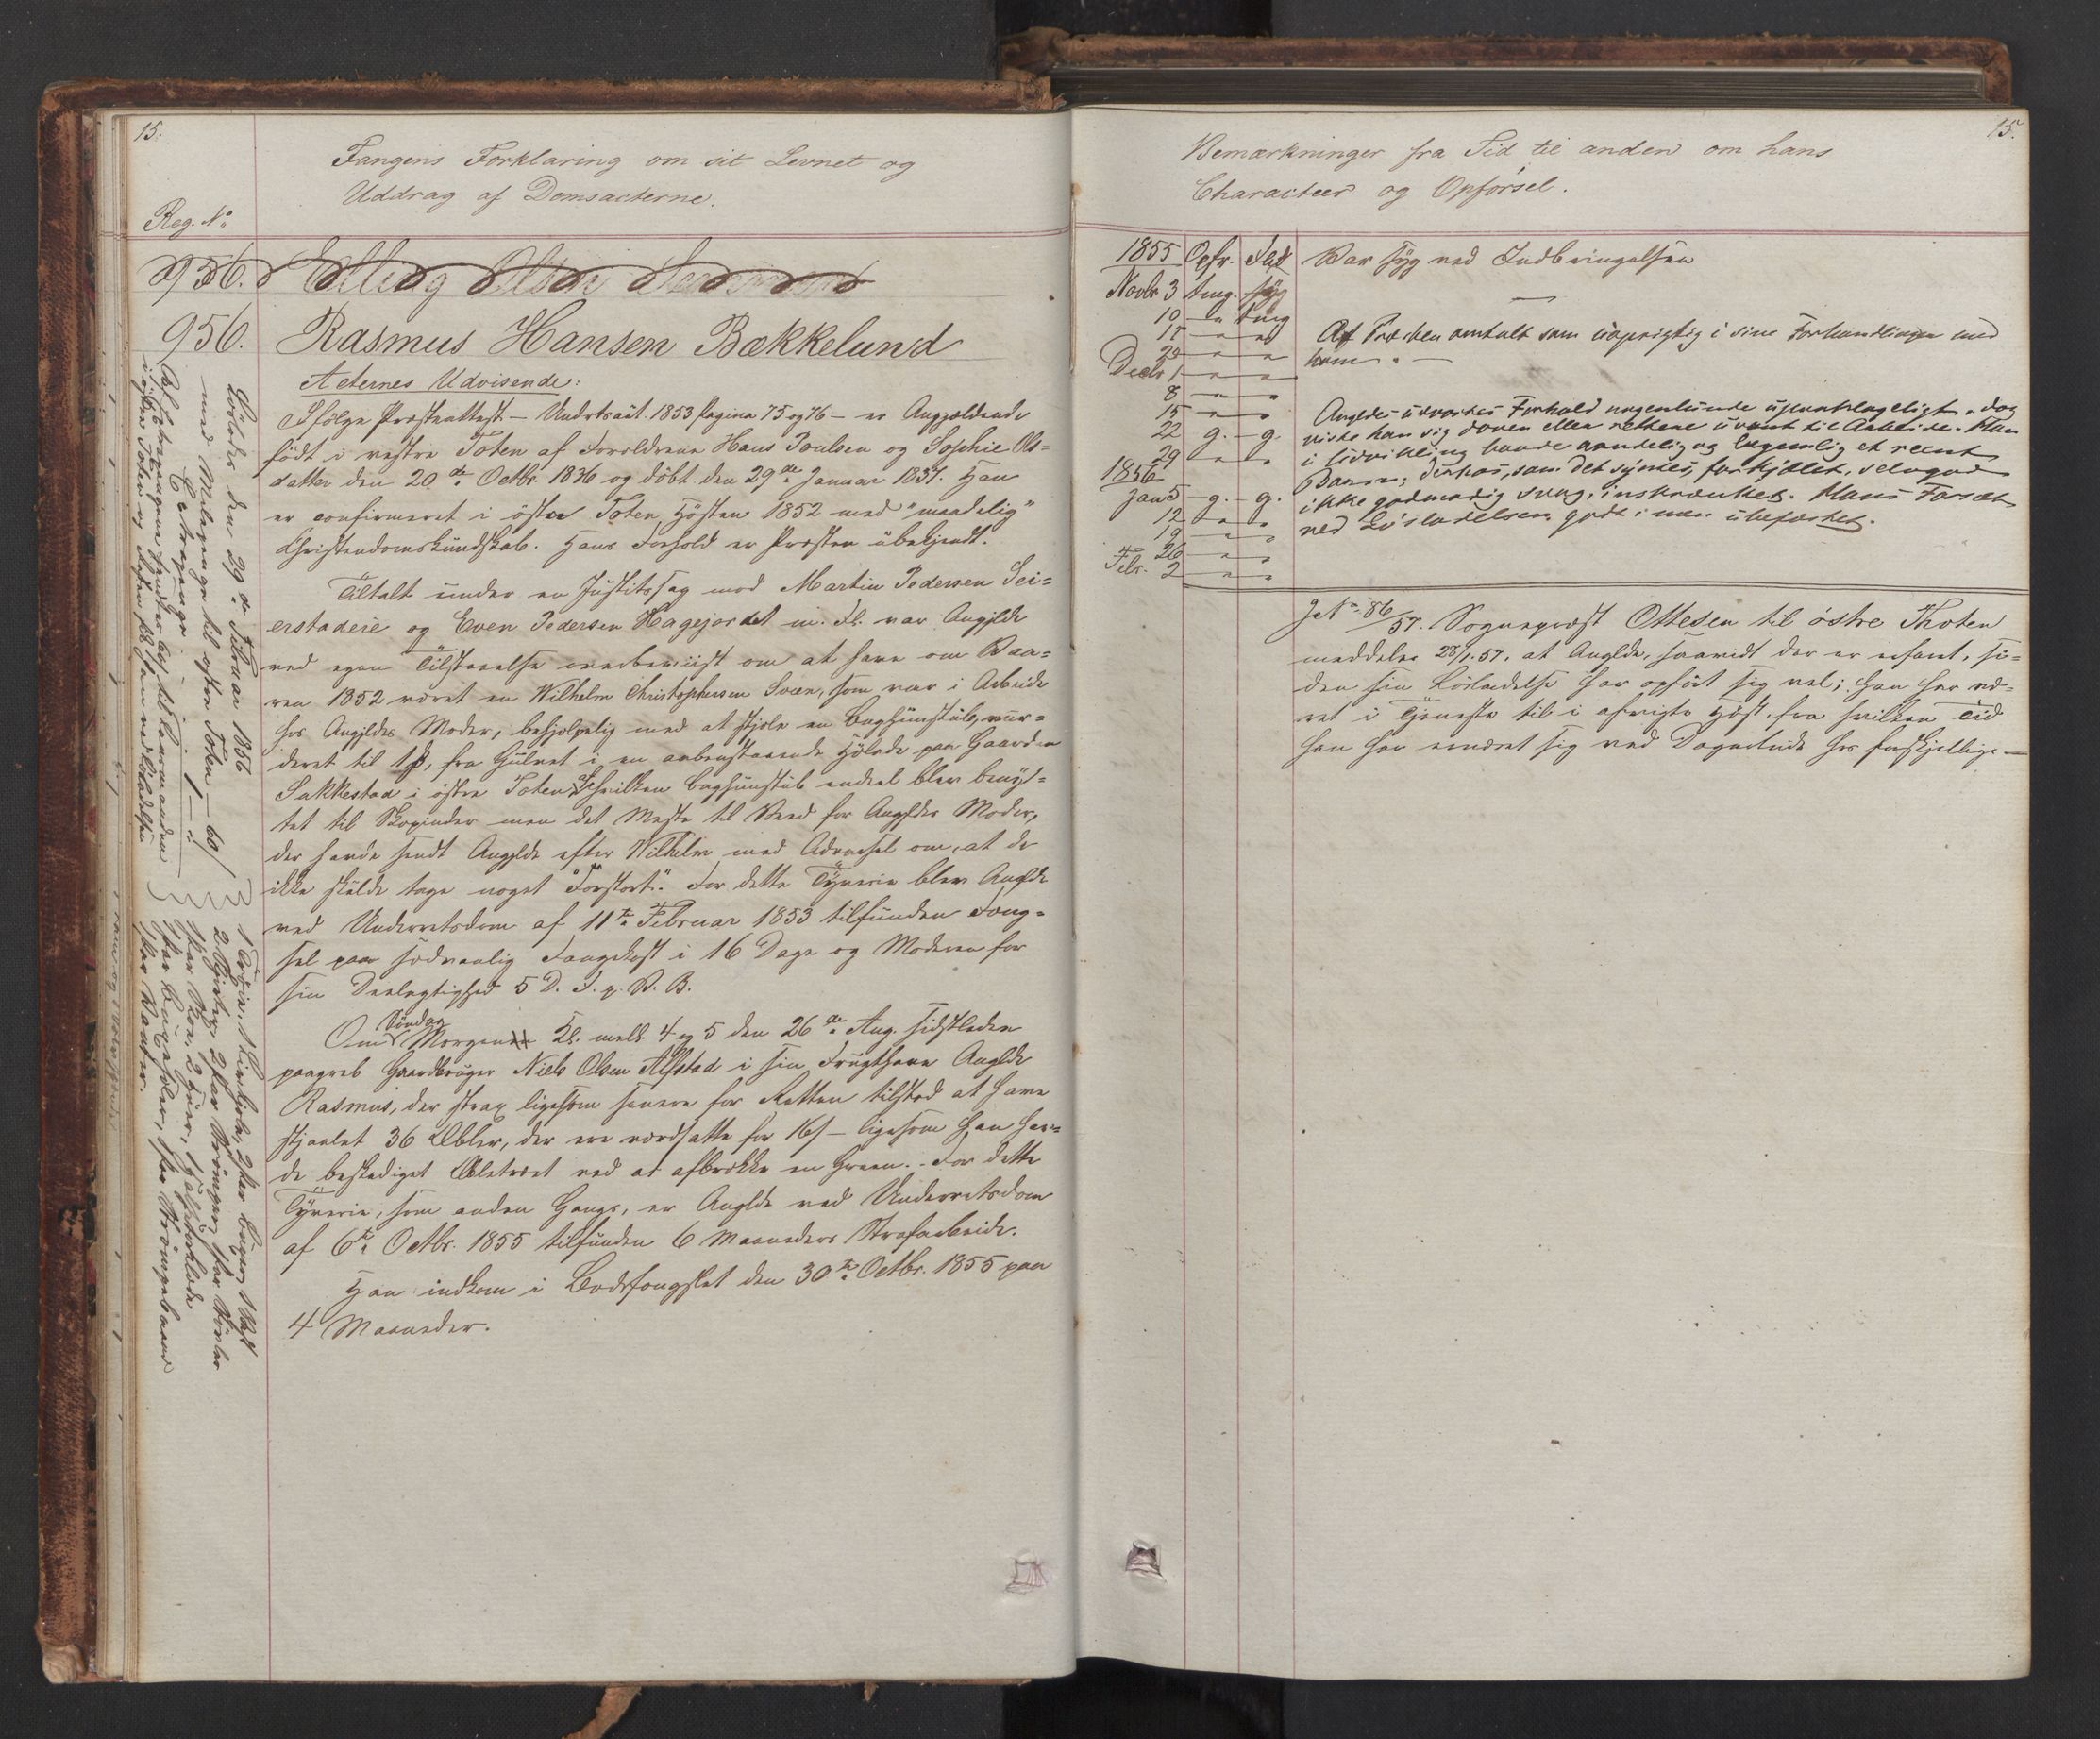 15.
Fangens Forklaring om sit Levnet og
Uddrag af Domsacterne.
Reg. No
956.
956. Rasmus Hansen Bækkelund
Acternes Udvisende:
Ifølge Præsteattest – Underretsact 1853 pagina 75 og 76 – er Angjældende
født i vestre Toten af Forældrene Hans Poulsen og Sophie Ols=
datter den 20de Octbr. 1836 og døbt den 29de Januar 1837. Han
er confirmeret i østre Toten Høsten 1852 med "maadelig"
Christendomskundskab. Hans Forhold er Præsten ubekjendt.
Tiltalt under en Justitssag mod Martin Pedersen Sei=
erstadeie og Even Pedersen Hagejordet m. Fl. var Angjldr
ved egen Tilstaaelse overbeviist om at have om Vaa=
ren 1852 været en Wilhelm Christophersen Svæn, som var i Arbeide
hos Angjldes Moder, behjælpelig med at stjæle en Baghunstub, vur=
deret til 1 , fra Gulvet i en aabenstaaende Hølade paa Gaarden
Sakkestad i østre Toten, hvilken Baghunstub endeel blev benyt=
tet til Skopinder men det Meste til Veed for Angjldes Moder,
der havde sendt Angjldr efter Wilhelm med Advarsel om, at de
ikke skulde tage noget "Forstort". For dette Tyverie blev Angjldr
ved Underretsdom af 11te Februar 1853 tilfunden Fæng=
sel paa sædvanlig Fangekost i 16 Dage og Moderen for
sin Deelagtighed 5 D. F. p. V. B.
Om Søndag Morgen Kl. mell. 4 og 5 den 26de Aug. sidstleden
paagreb Gaardbruger Niels Olsen Alfstad i sin Frugthave Angldr
Rasmus, der strax ligesom senere for Retten tilstod at have
stjaalet 36 Æbler, der ere værdsatte for 16 s – ligesom han hav=
de beskadiget Æbletræet ved at afbrække en Green. For dette
Tyverie, som anden Gangs, er Angldr ved Underretsdom
af 6te Octbr. 1855 tilfunden 6 Maaneders Strafarbeide.
Han indkom i Bodsfængslet den 30te Octbr. 1855 paa
4 Maaneder.
Løslades den 29de Februar 1856
med Milepenge til østre Toten – 60 s
Extrapenge
1 Trøie, 1 2 Par Buxer, 1 Vest
2 Skjorter, 2 Par Strømper, 1 Par Støvler
1 Par Skoe, 2 Huer, 1
1 Par Buxeseler, 1 Par Strømpebaand
15.
Bemærkninger fra Tid til anden om hans
Characteer og Opførsel.
1855 Opfr. Flid
Novbr 3 tmg. syg
10 – " tmg
17 – " – "
29 – " – "
Decbr 1 – " – "
8 – " – "
15 – " – "
22 g. – g.
29 – " – "
1856
Jan 5 – g. – g.
12 – " – "
19 – " – "
26 – " – "
Febr. 2 – " – "
Var syg ved Indbringelsen
Af Præsten omtalt som uoprigtig i sine Forhandlinger med
ham.
Angldes udvortes Forhold nogenlunde upaaklageligt, dog
viste han sig doven eller rettere uvant til Arbeide. Han
i Udvikling baade aandelig og legemlig et reent
Barn; derhos, som det syntes, forkjælet, selvgod
ikke godmodig svag, indskrænket. Hans Forsæt
ved Løsladelsen godt, men ubefæstet.
J No 86/57. Sognepræst Ottesen til østre Thoten
meddeler 28/1. 57. at Anglde, saavidt der er erfaret, si=
den sin Løsladelse har opført sig vel; han har væ=
ret i Tjeneste til i afvigte Høst, fra hvilken Tid
han har ernæret sig ved Dagarbeide hos forskjellige –